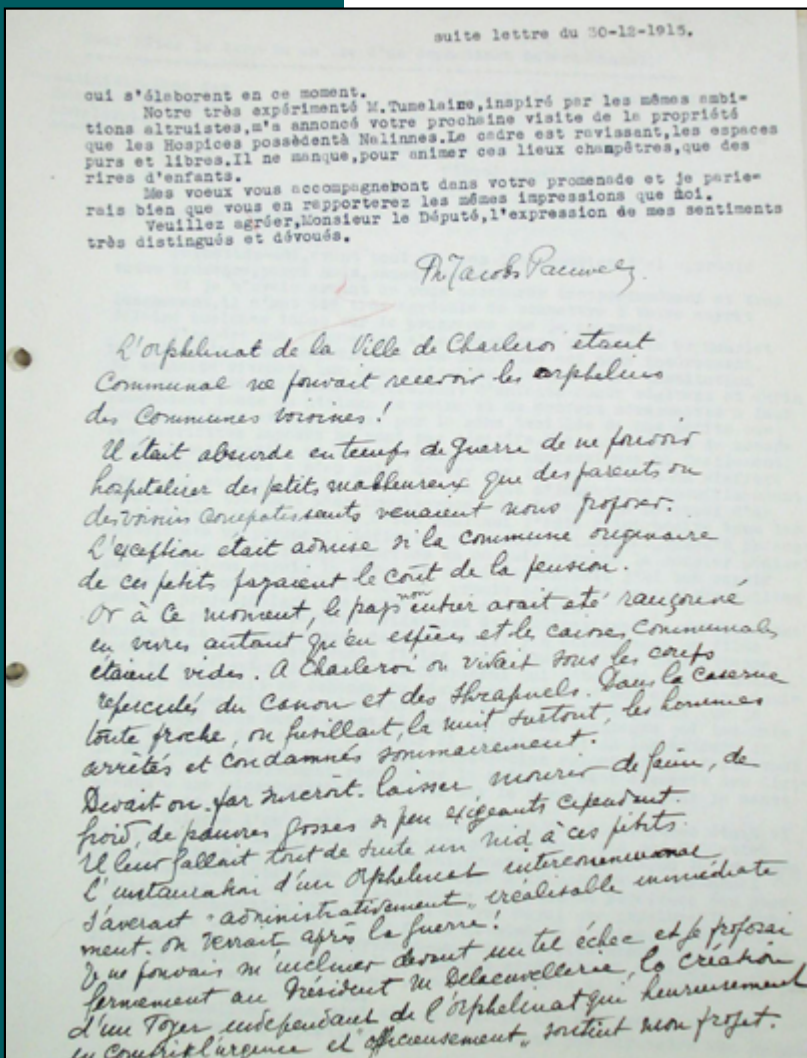 suite lettre du 30-12-1915.
qui s'élaborent en ce moment.
Notre très expérimenté M.Tumelaire,inspiré par les mêmes ambi-
tions altruistes,m'a annoncé votre prochaine visite de la propriété
que les Hospices possèdentà Nalinnes.Le cadre est ravissant,les espaces
purs et libres.Il ne manque,pour animer ces lieux champêtres,que des
rires d'enfants.
Mes voeux vous accompagneront dans votre promenade et je parie-
rais bien que vous en rapporterez les mêmes impressions que moi.
Veuillez agréer,Monsieur le Député,l'expression de mes sentiments
très distingués et dévoués.
Jacobs Pauwels
L'orphelinat de la Ville de Charleroi étant
Communal ne pouvait recevoir les orphelins
des Communes voisines !
Il était absurde en temps de guerre de ne pouvoir
hospitaliser des petits malheureux que des parents ou
des voisins compatissants venaient nous proposer.
L'exception était admise si la commune originaire
de ces petits payaient le coût de la pension.
Or à ce moment, le pays non entier avait été rançonné
en vivres autant qu'en espèces et les caisses Communales
étaient vides. A Charleroi on vivait sous les coups
repercutés du Canon et des Shrapnels. Dans la Caserne
toute proche, on fusillait, la nuit surtout, les hommes
arrêtés et condamnés sommairement.
Devait on. par surcroit. laisser mourir de faim, de
froid, de pauvres gosses si peu exigeants cependant.
Il leur fallait tout de suite un nid à ces petits.
L'instauration d'un Orphelinat intercommunal
s'averait "administrativement" irréalisable immédiate
ment. on verrait après la guerre !
Je ne pouvais m'incliner devant un tel échec et je proposai
fermement au Président M Delacuvellerie, la création
d'un Foyer independant de l'orphelinat qui heureusement
en comprit l'urgence et "officieusement" soutint mon projet.